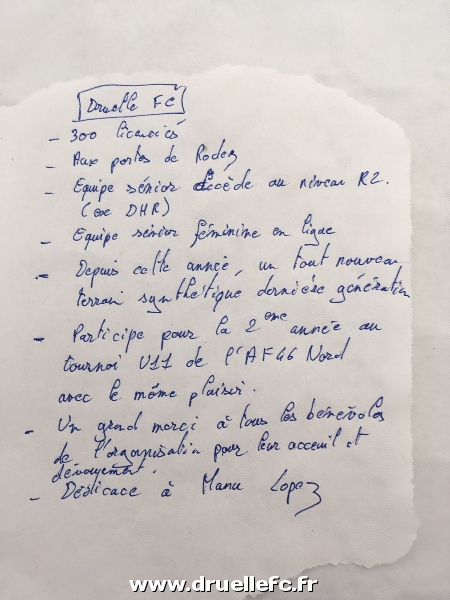 Druelle FC
- 300 licenciés
- Aux portes de Rodez
- Equipe sénior accède au niveau R2.
(ex DHR)
- Equipe sénior féminine en ligue
- Depuis cette année, un tout nouveau
terrain synthétique dernière génération
- Participe pour la 2eme année au
tournoi U11 de l'AF46 Nord
avec le même plaisir.
- Un grand merci à tous les bénévoles
de l'organisation pour leur acceuil et
dévouement.
- Dédicace à Manu Lopez
www.druellefc.fr